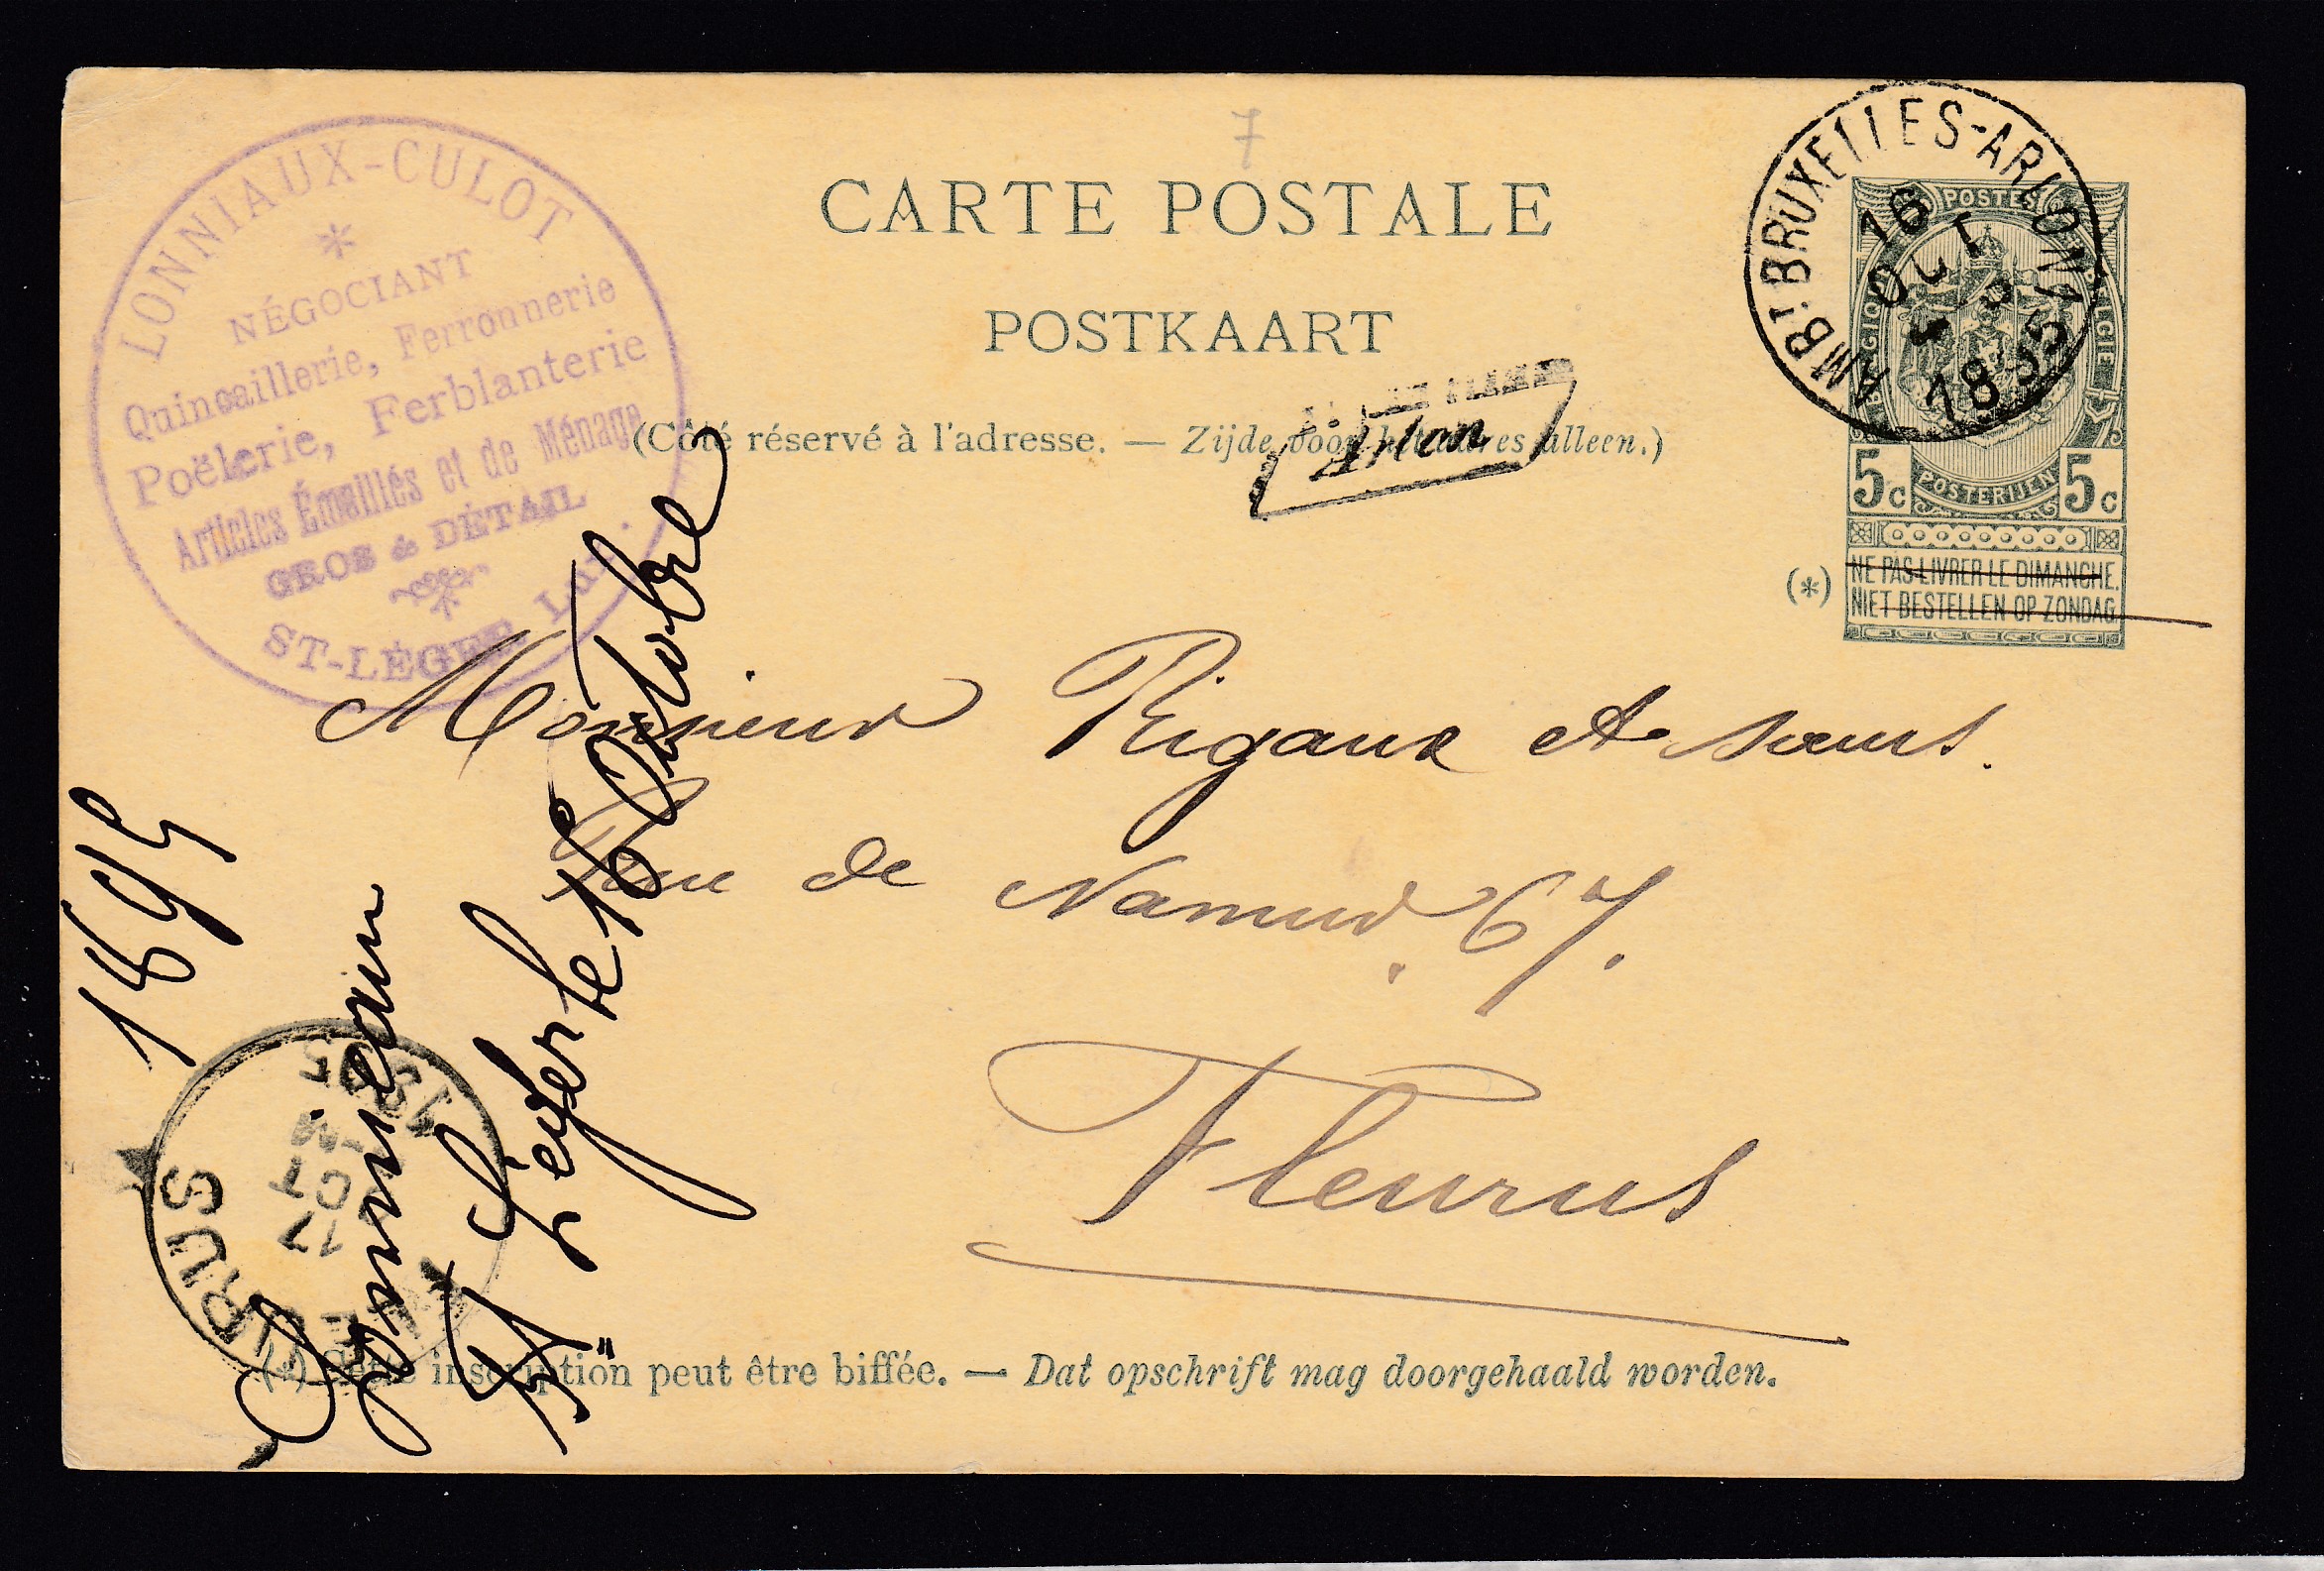 7
CARTE POSTALE
POSTKAART
(Côté réservé à l'adresse. — Zijde voor het adres alleen.)
LONNIAUX-CULOT
NÉGOCIANT
Quincaillerie, Ferronnerie
Poëlerie, Ferblanterie
Articles Émaillés et de Ménage
GROS & DÉTAIL
ST-LÉGER Lux.
Arlon
AMBT BRUXELLES-ARLON 1
16
OCT
1895
POSTES
BELGIQUE BELGIE
5c 5c
POSTERIJEN
(*)
NE PAS LIVRER LE DIMANCHE.
NIET BESTELLEN OP ZONDAG.
Monsieur Rigaux et sœurs.
Rue de Namur. 67.
Fleurus
St Léger le 16 Octobre
1895
FLEURUS
17
OCT
1895
(*) Cette inscription peut être biffée. — Dat opschrift mag doorgehaald worden.